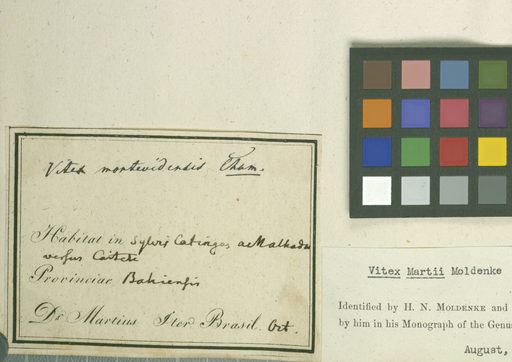 Vitex montevidensis Cham.
Habitat in Sylvis Catingas ac
versus
Provinciae Bahiensis
Dr Martius Iter Brasil. Oct.
Vitex Martii Moldenke
Identified by H. N. MOLDENKE and
by him in his Monograph of the Genus
August,